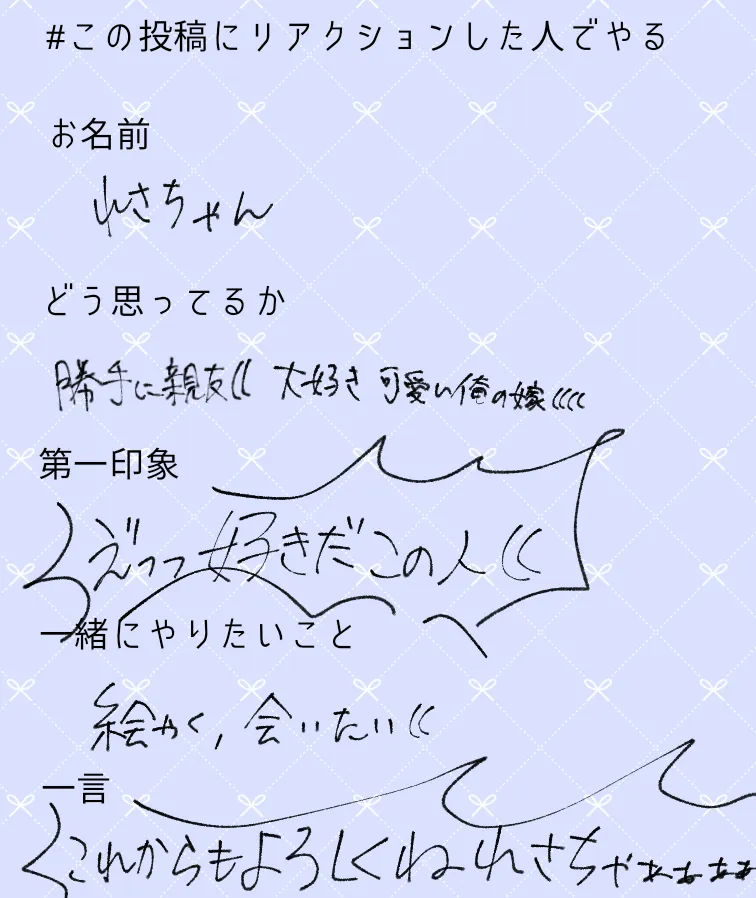 #この投稿にリアクションした人でやる
お名前
れさちゃん
どう思ってるか
勝手に親友(( 大好き 可愛い俺の嫁((((
第一印象
え゛っっ好きだこの人((
一緒にやりたいこと
絵かく, 会いたい((
一言
これからもよろしくねれさちゃぁぁぁぁ